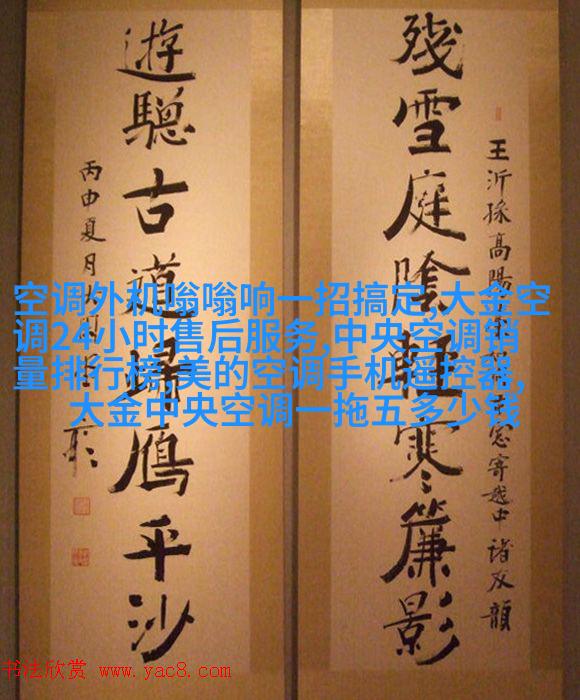 王沂孫高陽窓寄越中諸友韻
殘雪庭陰輕寒簾影
遊驄古道歸鴈平沙
丙申夏月
空调外机嗡嗡响一招搞定,大金空
调24小时售后服务,中央空调销
量排行榜,美的空调手机遥控器,
大金中央空调一拖五多少钱
书法欣赏 www.yac8.com